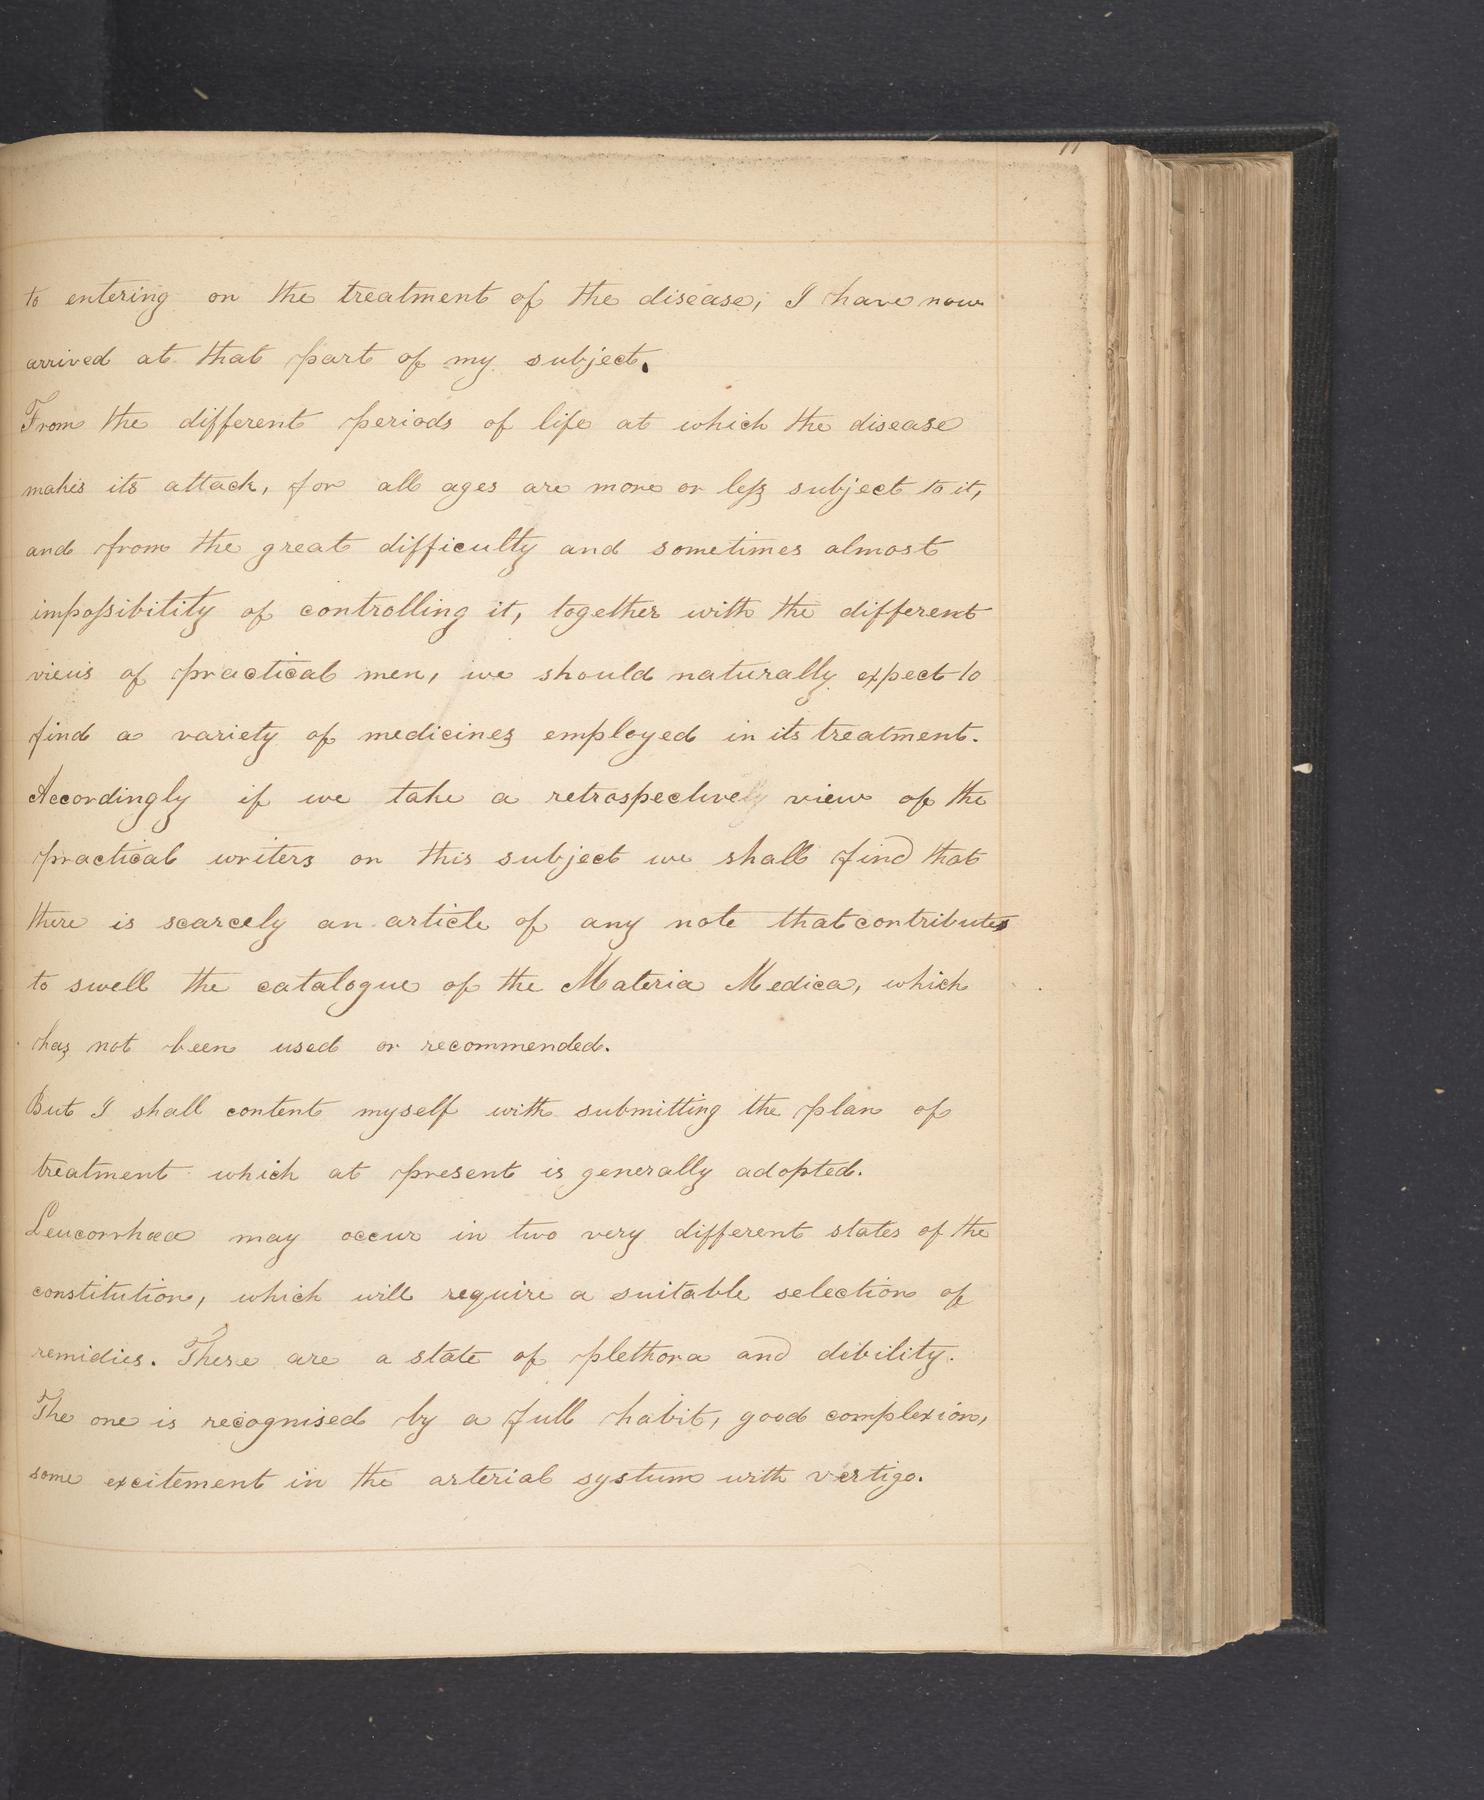 11
to entering on the treatment of the disease; I have now
arrived at that part of my subject.
From the different periods of life at which the disease
makes its attack, for all ages are more or less subject to it,
and from the great difficulty and sometimes almost
impossibility of controlling it, together with the different
views of practical men, we should naturally expect to
find a variety of medicines employed in its treatment.
Accordingly if we take a retrospective view of the
practical writers on this subject we shall find that
there is scarcely an article of any note that contributes
to swell the catalogue of the Materia Medica, which
has not been used or recommended.
But I shall content myself with submitting the plan of
treatment which at present is generally adopted.
Leucorrhœa may occur in two very different states of the
constitution, which will require a suitable selection of
remidies. These are a state of plethora and dibility.
The one is recognised by a full habit, good complexion,
some excitement in the arterial systum with vertigo.